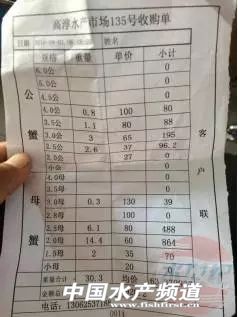 高淳水产市场135号收购单
日期 姓名
规格 重量 单价 小计
公蟹
6.0公 0
5.0公 0
4.5公 0
4.0公 0.8 100 80
3.5公 1.1 80 88
3.0公 3 65 195
2.5公 2.6 37 96.2
2.0公 27 0
小公 0
母蟹
4.0母 0
3.5母 0
3.0母 0.3 130 39
0
2.5母 6.1 80 488
2.0母 14.4 60 864
1.5母 2 35 70
小母 20 0
重量合计 30.3 均价
电话: 1306253718
客户联
中国水产频道
www.fishfirst.cn